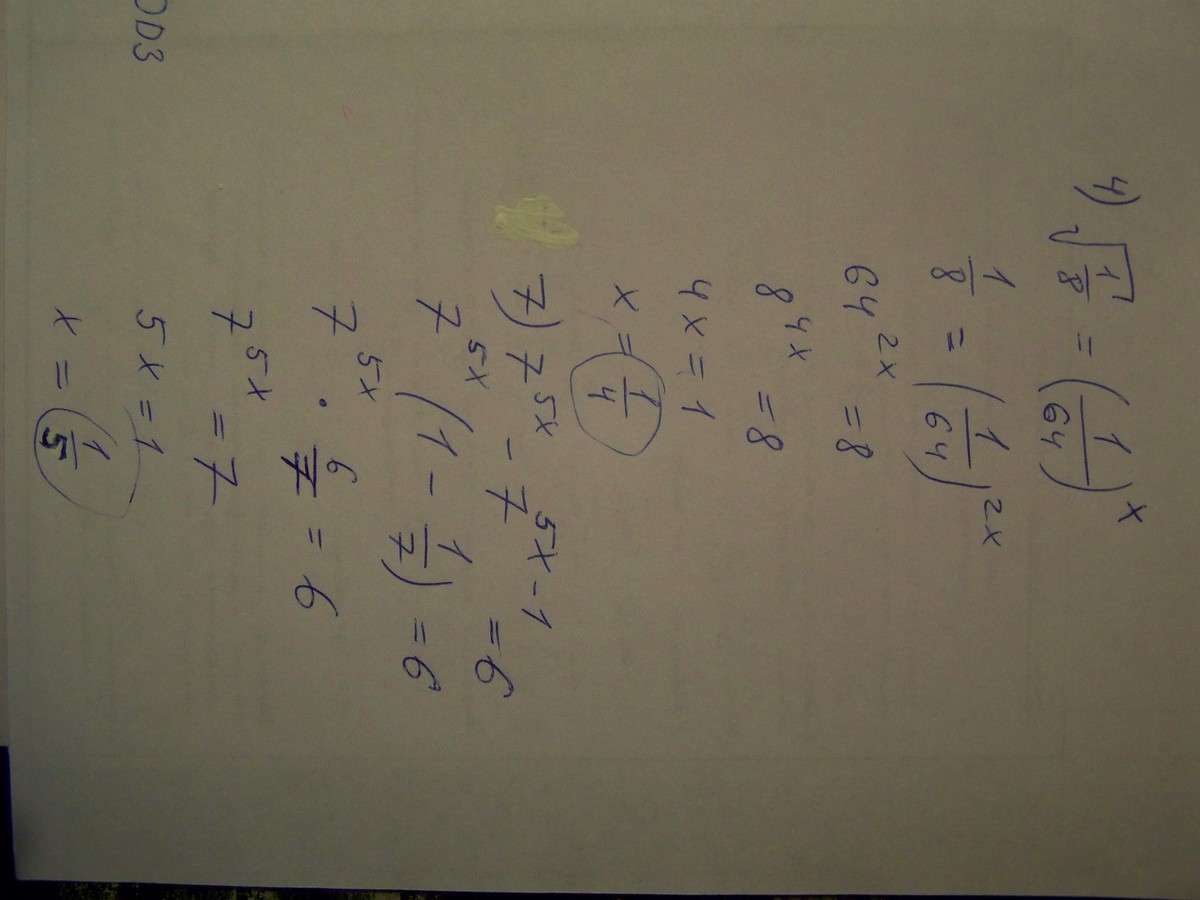 4) √(1/8) = (1/64)^x
1/8 = (1/64)^2x
64^2x = 8
8^4x = 8
4x = 1
x = 1/4
7) 7^5x - 7^5x-1 = 6
7^5x (1 - 1/7) = 6
7^5x · 6/7 = 6
7^5x = 7
5x = 1
x = 1/5